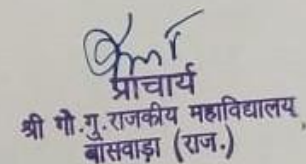 प्राचार्य
श्री गो.गु.राजकीय महाविद्यालय,
बांसवाड़ा (राज.)